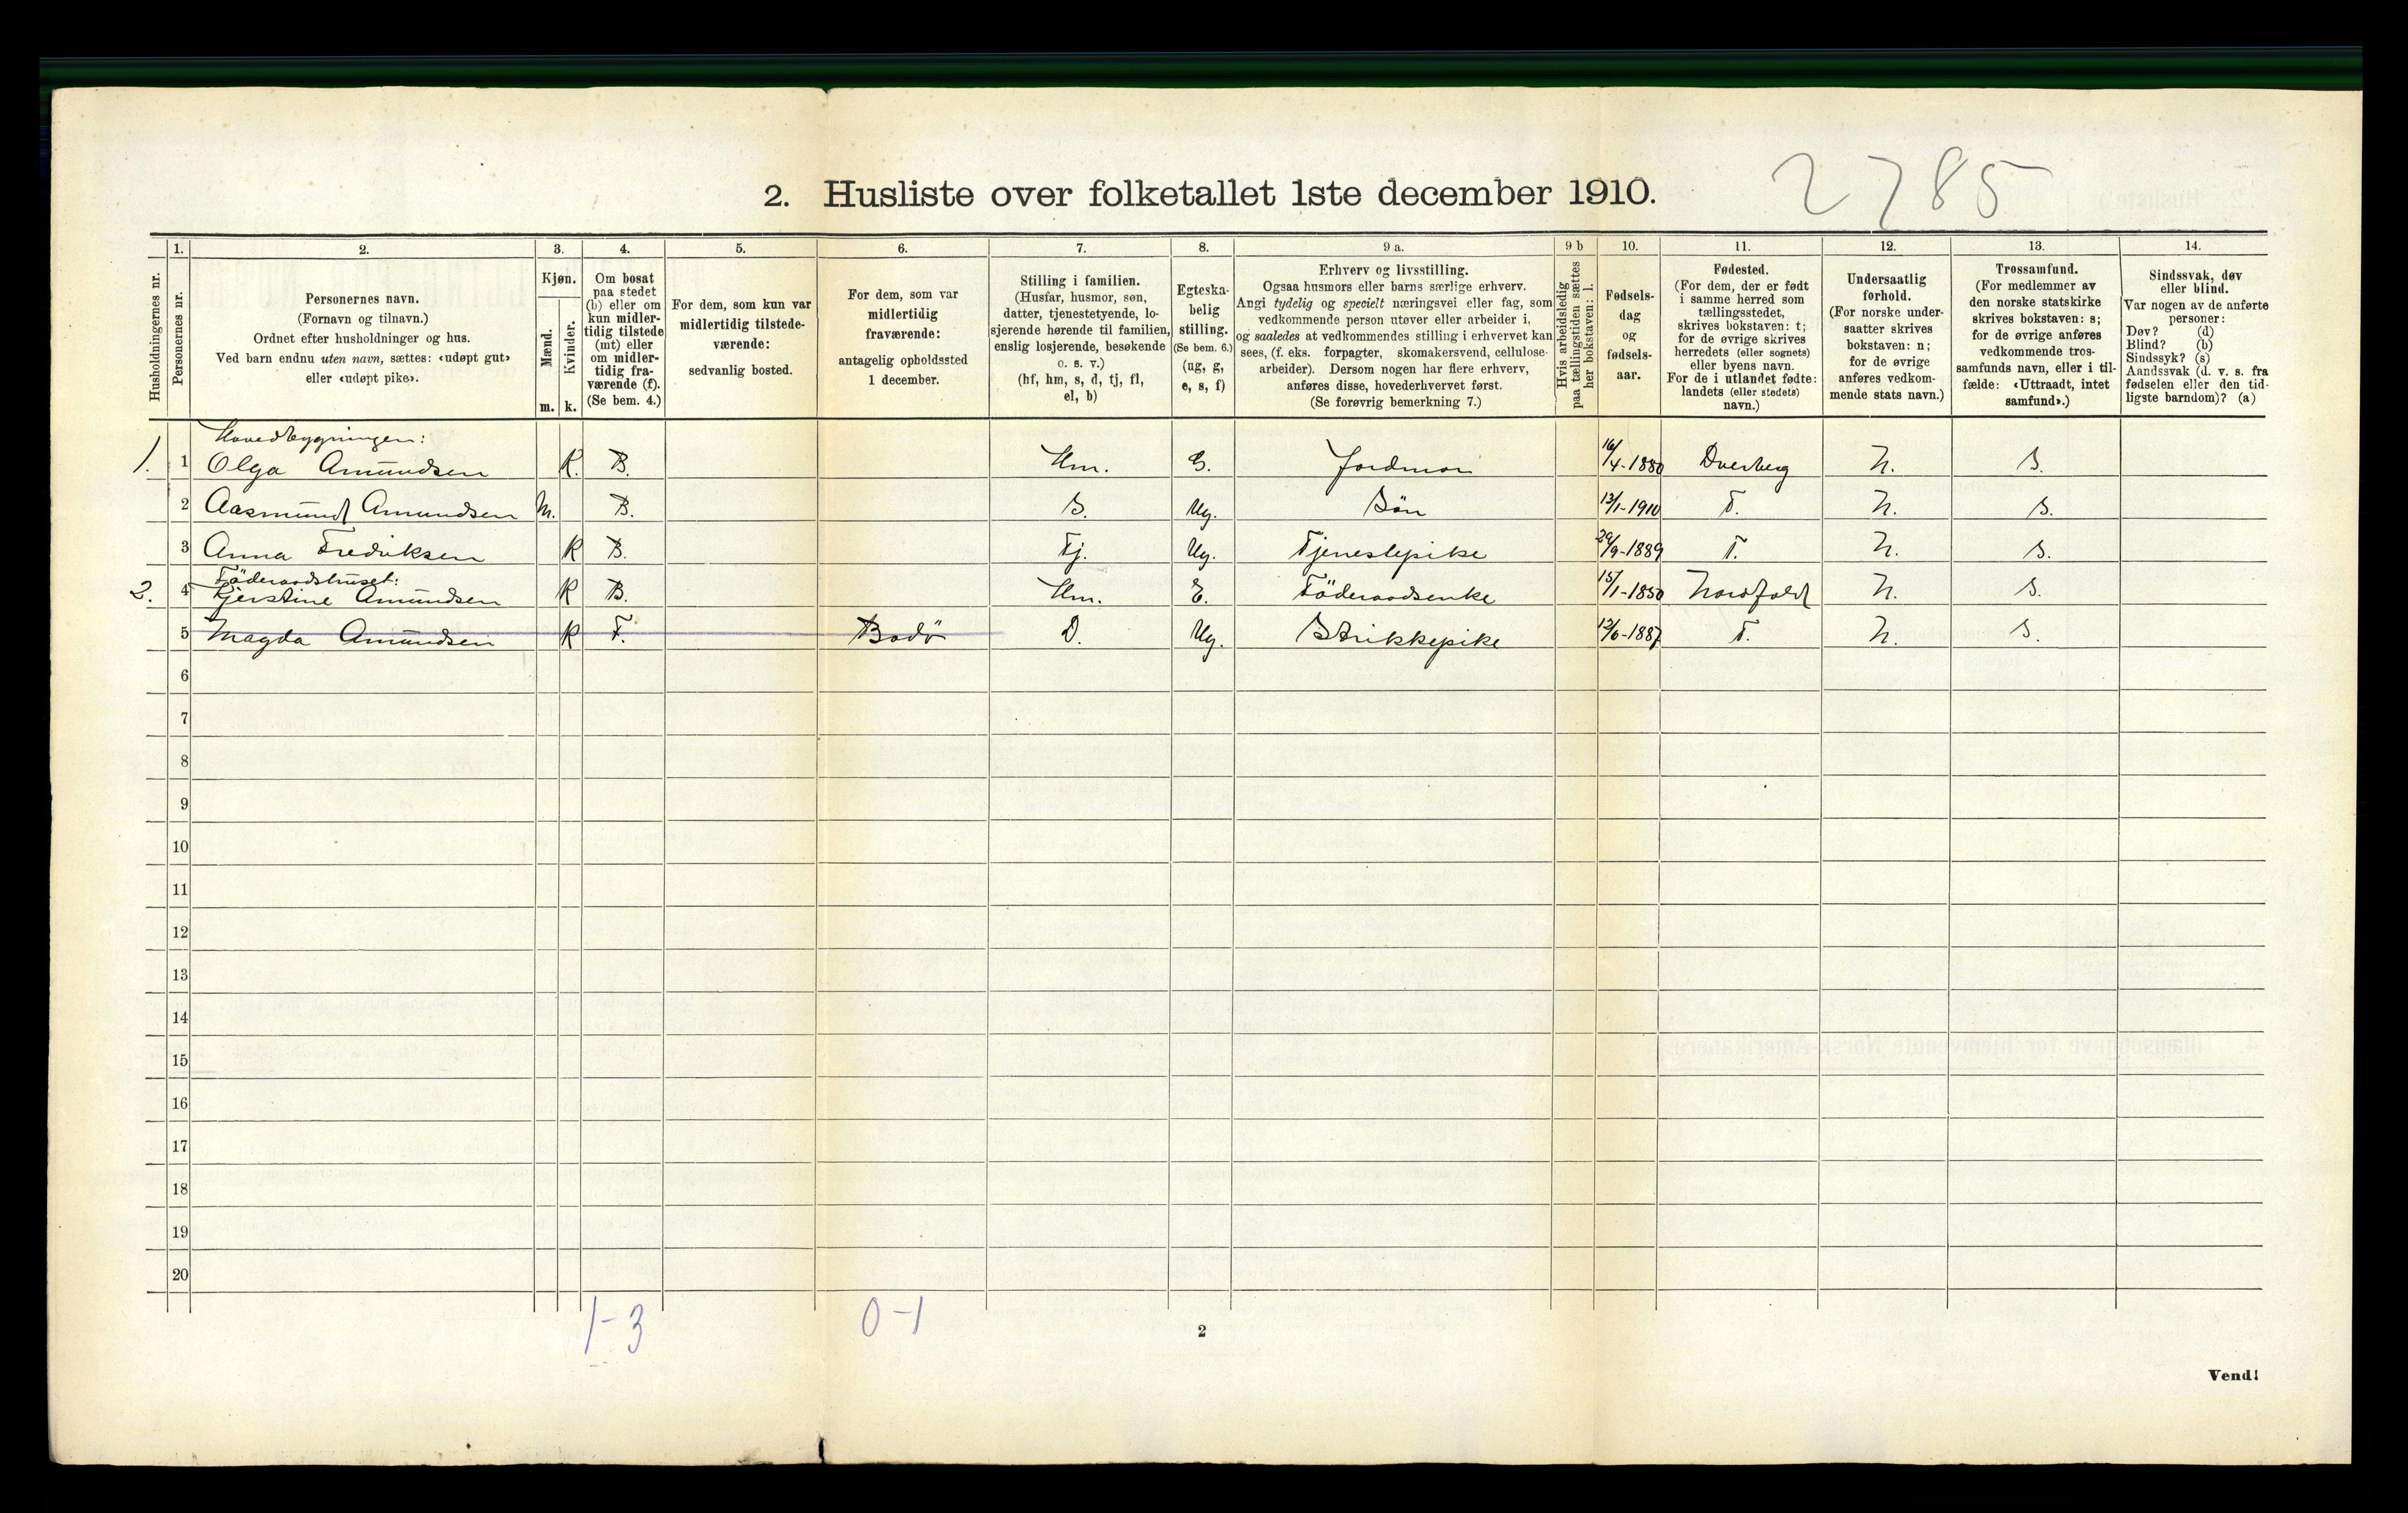 2. Husliste over folketallet 1ste december 1910.
2785
Husholdningernes nr.
1.
Personernes nr.
2.
Personernes navn.
(Fornavn og tilnavn.)
Ordnet efter husholdninger og hus.
Ved barn endnu uten navn, sættes: «udøpt gut»
eller «udøpt pike».
3.
Kjøn.
Mænd.
Kvinder.
m. k.
4.
Om bosat
paa stedet
(b) eller om
kun midler-
tidig tilstede
(mt) eller
om midler-
tidig fra-
værende (f).
(Se bem. 4.)
5.
For dem, som kun var
midlertidig tilstede-
værende:
sedvanlig bosted.
6.
For dem, som var
midlertidig
fraværende:
antagelig opholdssted
1 december.
7.
Stilling i familien.
(Husfar, husmor, søn,
datter, tjenestetyende, lo-
sjerende hørende til familien,
enslig losjerende, besøkende
o. s. v.)
(hf, hm, s, d, tj, fl,
el, b)
8.
Egteska-
belig
stilling.
(Se bem. 6.)
(ug, g,
e, s, f)
9 a.
Erhverv og livsstilling.
Ogsaa husmors eller barns særlige erhverv.
Angi tydelig og specielt næringsvei eller fag, som
vedkommende person utøver eller arbeider i,
og saaledes at vedkommendes stilling i erhvervet kan
sees, (f. eks. forpagter, skomakersvend, cellulose-
arbeider). Dersom nogen har flere erhverv,
anføres disse, hovederhvervet først.
(Se forøvrig bemerkning 7.)
9 b
Hvis arbeidsledig
paa tællingstiden sættes
her bokstaven: l.
10.
Fødsels-
dag
og
fødsels-
aar.
11.
Fødested.
(For dem, der er født
i samme herred som
tællingsstedet,
skrives bokstaven: t;
for de øvrige skrives
herredets (eller sognets)
eller byens navn.
For de i utlandet fødte:
landets (eller stedets)
navn.)
12.
Undersaatlig
forhold.
(For norske under-
saatter skrives
bokstaven: n;
for de øvrige
anføres vedkom-
mende stats navn.)
13.
Trossamfund.
(For medlemmer av
den norske statskirke
skrives bokstaven: s;
for de øvrige anføres
vedkommende tros-
samfunds navn, eller i til-
fælde: «Uttraadt, intet
samfund».)
14.
Sindssvak, døv
eller blind.
Var nogen av de anførte
personer:
Døv? (d)
Blind? (b)
Sindssyk? (s)
Aandssvak (d. v. s. fra
fødselen eller den tid-
ligste barndom)? (a)
Hovedbygningen:
1. 1 Olga Amundsen K. B. Hm. G. Jordmor 16/4-1880 Dverberg N. S.
2 Aasmund Amundsen M. B. S. Ug. Sön 13/1-1910 T. N. S.
3 Anna Fredriksen K B. Tj. Ug. Tjenestepike 29/9-1889 T. N. S.
Föderaadshuset:
2. 4 Kjerstine Amundsen K B. Hm. E. Föderaadsenke 15/1-1850 Nordfold N. S.
5 Magda Amundsen K F. Bodö D. Ug. Strikkepike 12/6-1887 T. N. S.
6
7
8
9
10
11
12
13
14
15
16
17
18
19
20
1-3
0-1
2
Vend!